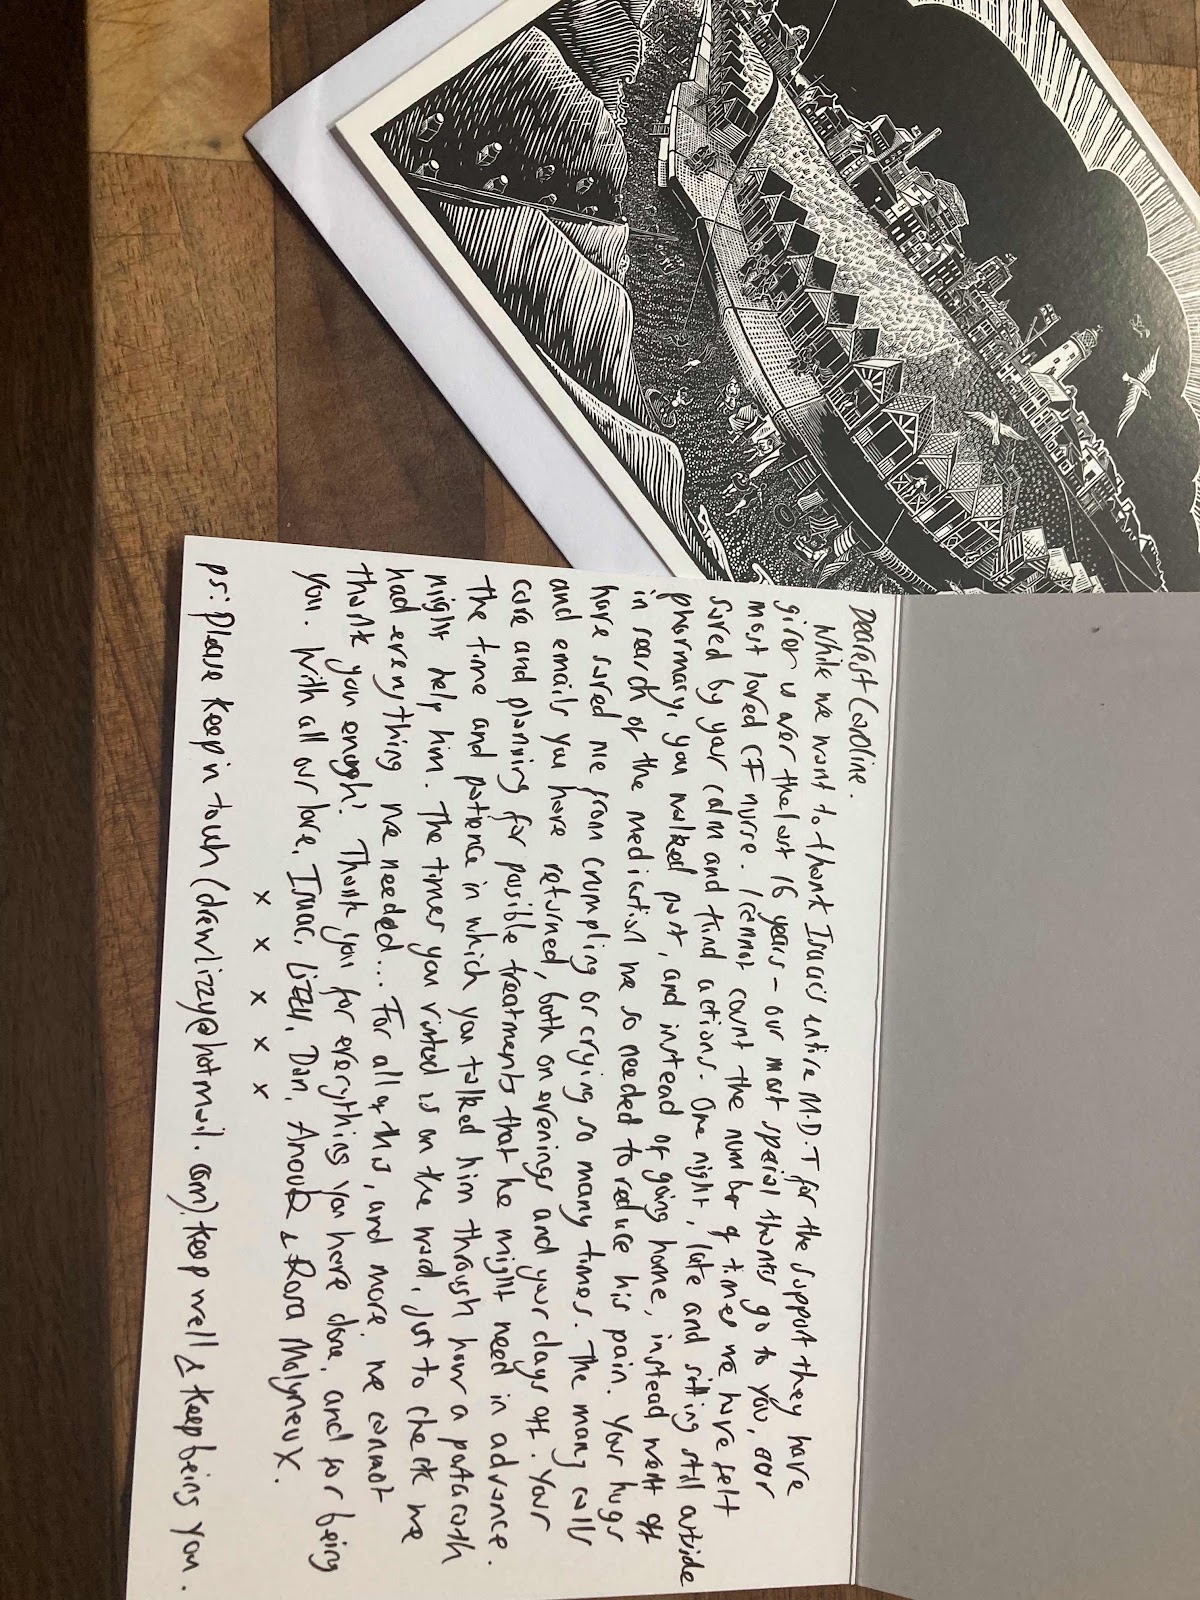 Dearest Caroline.
While we want to thank Isaac's entire M.D.T for the support they have
given us over the last 16 years - our most special thanks go to you, our
most loved CF nurse. I cannot count the number of times we have felt
saved by your calm and kind actions. One night, late and sitting still outside
pharmacy, you walked past, and instead of going home, instead went off
in search of the medication we so needed to reduce his pain. Your hugs
have saved me from crumpling or crying so many times. The many calls
and emails you have returned, both on evenings and your days off. Your
care and planning for possible treatments that he might need in advance.
The time and patience in which you talked him through how a portacath
might help him. The times you visited us on the ward, just to check we
had everything we needed... For all of this, and more, we cannot
thank you enough! Thank you for everything you have done, and for being
you. With all our love, Isaac, Lizzy, Dan, Anouk & Rosa Molyneux.
x x x x x
ps: Please keep in touch (drawlizzy@hotmail.com). Keep well & keep being you.